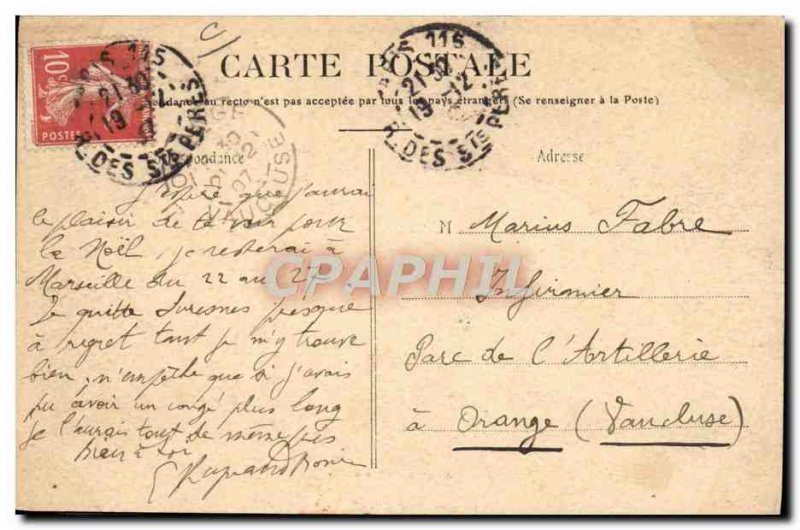 CARTE POSTALE
au recto n'est pas acceptée par tous les pays étrangers (Se renseigner à la Poste)
10c
POSTES
R. DES Sts PÈRES
115
21 30
19 -12
R. DES Sts PÈRES
VAUCLUSE
Adresse
que j'aurai
le plaisir de te voir pour
la Noël, je resterai à
Marseille du 22 au 27.
Je quitte Suresnes presque
à regret tant je m'y trouve
bien, n'empêche que si j'avais
pu avoir un congé plus long
je l'aurais tout de même pris
bien à toi
M Marius Fabre
Infirmier
Parc de l'Artillerie
à Orange (Vaucluse)
CPAPHIL